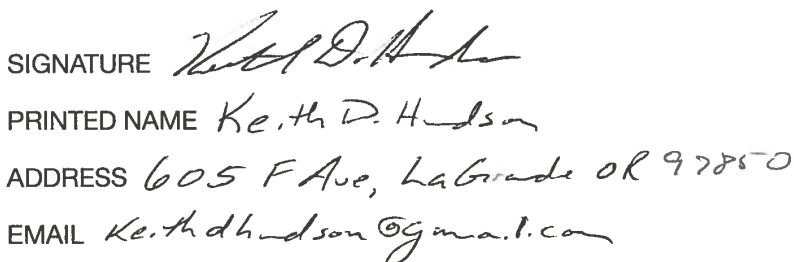 SIGNATURE Keith D. Hudson
PRINTED NAME Keith D. Hudson
ADDRESS 605 F Ave, LaGrande OR 97850
EMAIL keithdhudson@gmail.com